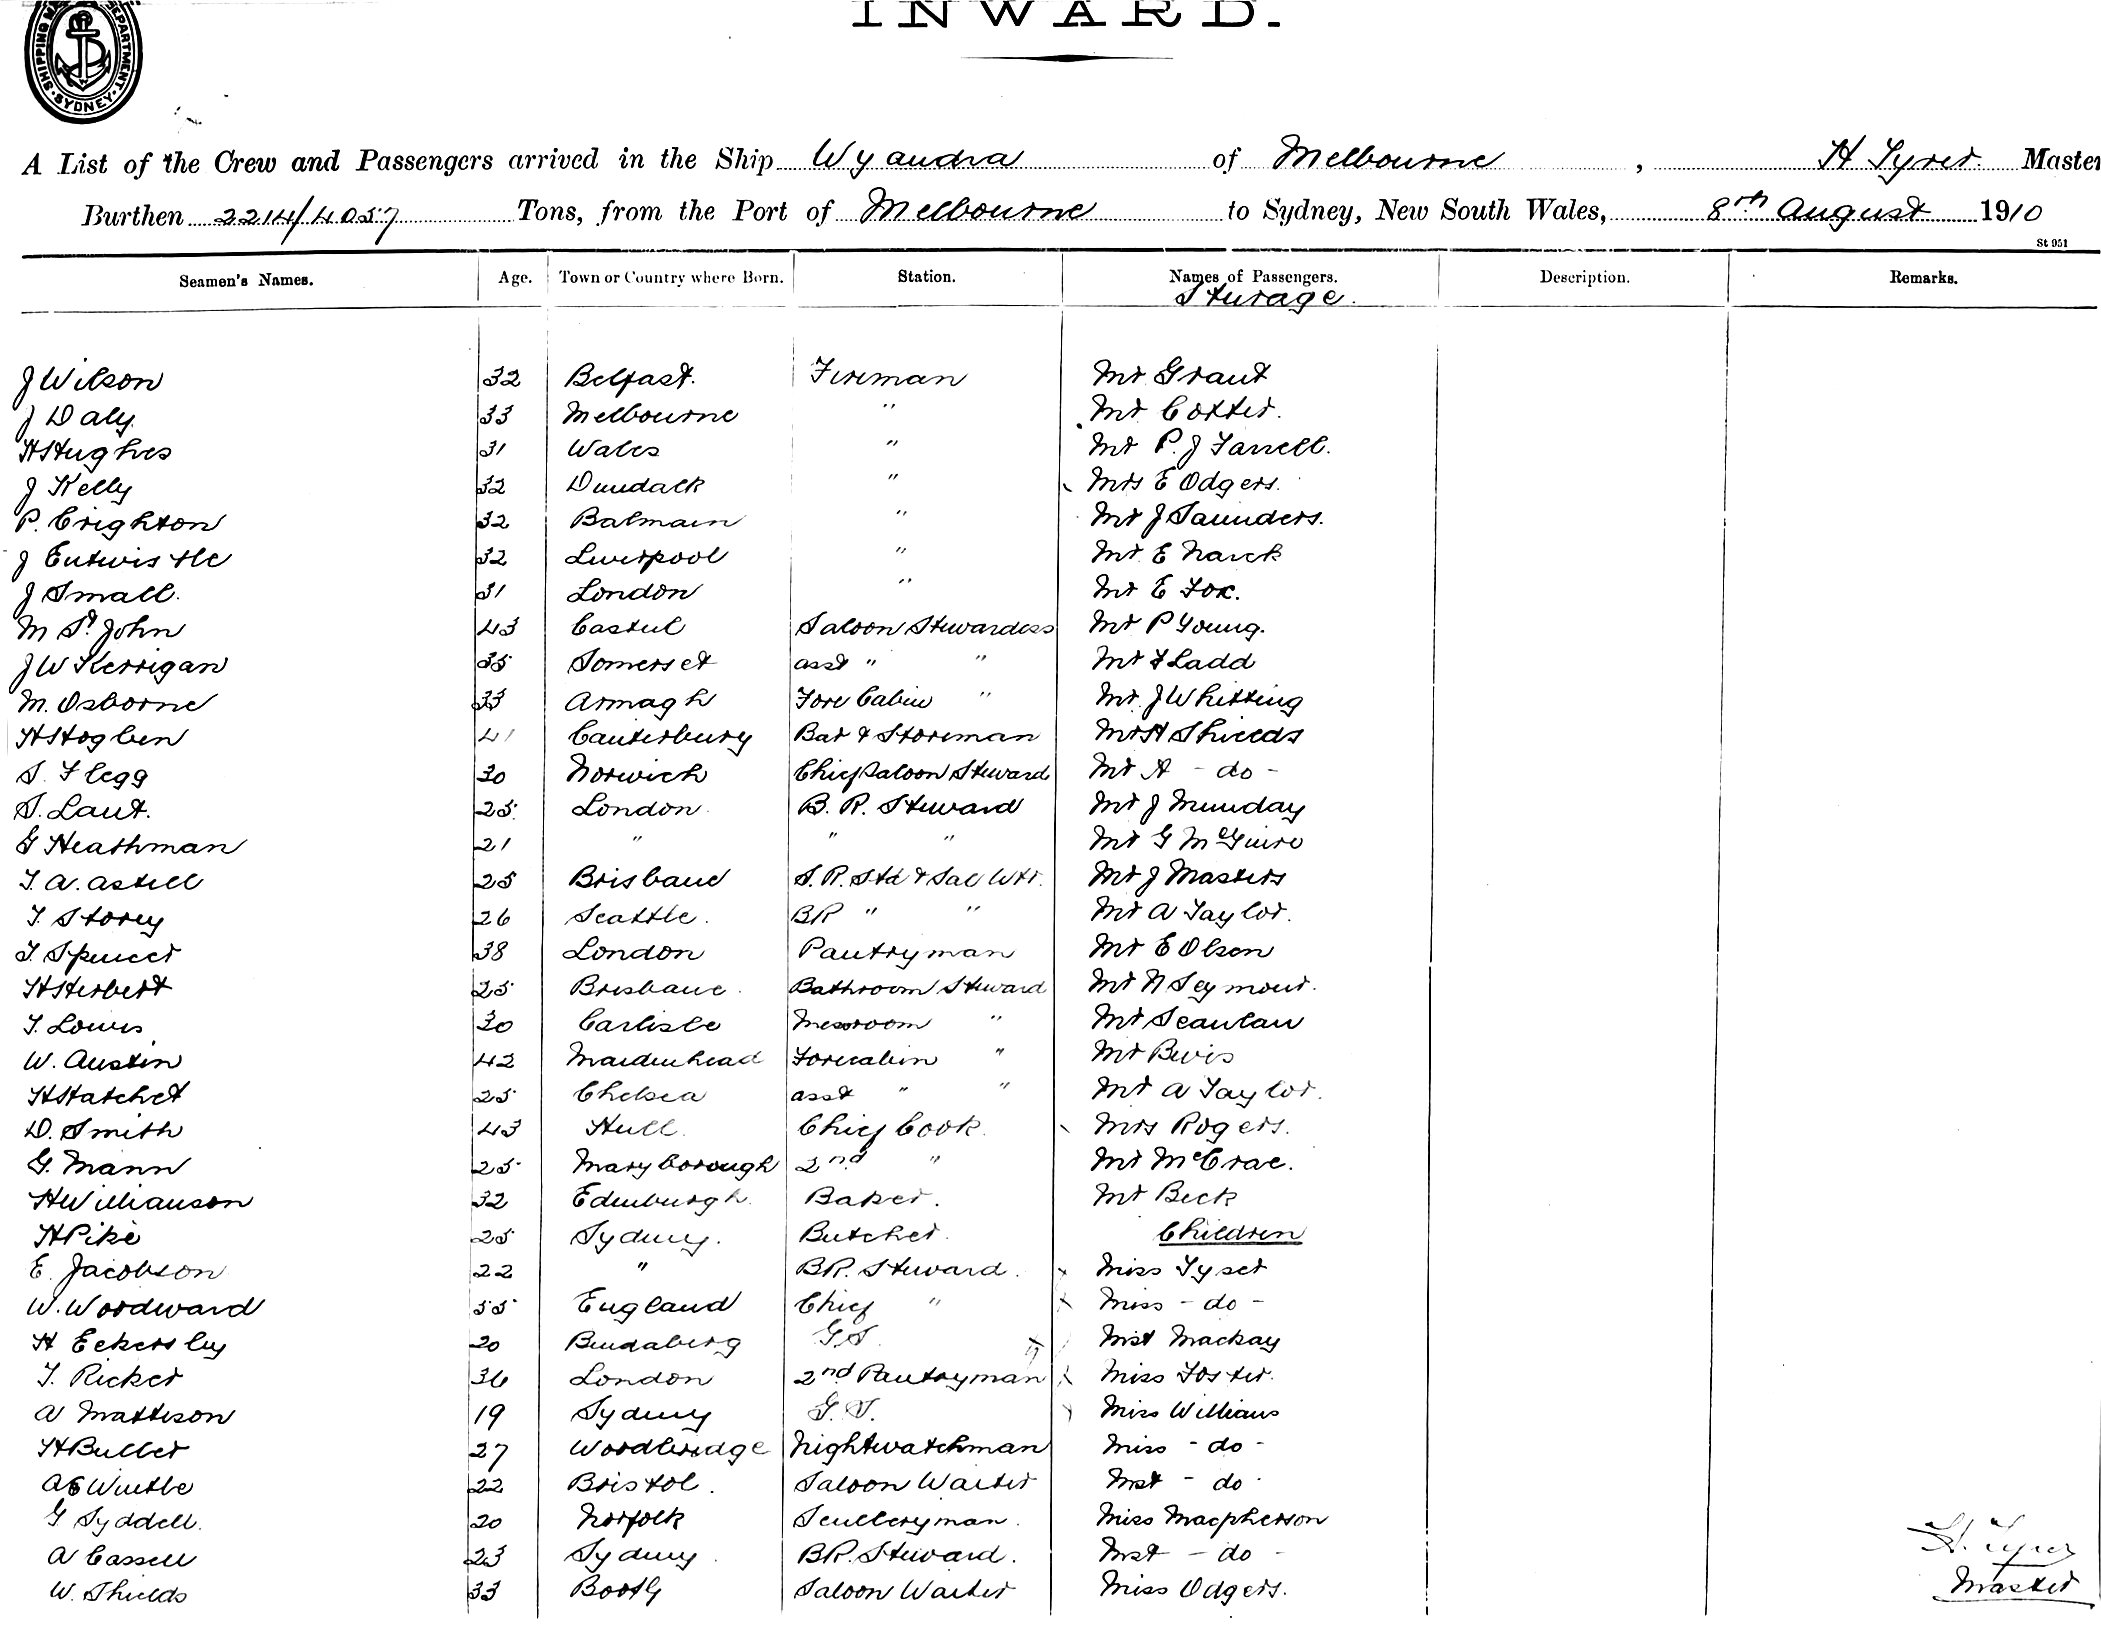 INWARD.
SHIPPING DEPARTMENT SYDNEY
A List of the Crew and Passengers arrived in the Ship Wyandra of Melbourne, H Tyrer Master
Burthen 2214/4057 Tons, from the Port of Melbourne to Sydney, New South Wales, 8th August 1910
St 951
Seamen's Names. Age. Town or Country where Born. Station. Names of Passengers. Description. Remarks.
Sturage.
J Wilson 32 Belfast. Fireman Mr Grant
J Daly. 33 Melbourne " Mr Cotter.
H Hughes 31 Wales " Mr P. J Farrell.
J Kelly 32 Dundalk " Mrs E Odgers.
P. Crighton 32 Balmain " Mr J Saunders.
J Entwistle 32 Liverpool " Mr E
J Small. 31 London " Mr E Fox.
M St. John 43 Saloon Stewardess Mr P Young.
J W Kerrigan 35 Somerset asst " " Mr F Ladd
M. Osborne 33 Armagh Fore Cabin " Mr. J Whitting
H Hogben 41 Canterbury Bar & Storeman Mr H Shields
S. Flegg 30 Norwich Chief Saloon Steward Mr A - do -
S. Laut. 25 London B. R. Steward Mr J Munday
G Heathman 21 " " " Mr G McGuire
T. A. Astill 25 Brisbane S. R. Std & Sal Wtr. Mr J Masters
T. Storey 26 Seattle. BR " " Mr A Taylor.
T. Spencer 38 London Pantryman Mr E Olsen
H Herbert 25 Brisbane. Bathroom Steward Mr N Seymour.
T. Lewis 30 Carlisle Messroom " Mr Scanlan
W. Austin 42 Maidenhead Forecabin " Mr Bevis
H Hatchet 25 Chelsea asst " " Mr A Taylor.
D. Smith 43 Hull. Chief Cook. Mrs Rogers.
G. Mann 25 Maryborough 2nd " Mr McCrae.
H Williamson 32 Edinburgh. Baker. Mr Beck
H Pike 25 Sydney. Butcher. Children
E. Jacobson 22 " BR. Steward. Miss Tyser
W. Woodward 55 England Chief " Miss - do -
H Eckersley 20 Bundaberg G S. Mst Mackay
T. Ricket 36 London 2nd Pantryman Miss Foster.
A Mattison 19 Sydney G. S. Miss Williams
H Buller 27 Woodbridge Nightwatchman Miss - do -
22 Bristol. Saloon Waiter Mst - do -
G Syddell. 20 Norfolk Sculleryman. Miss Macpherson
A Cassell 23 Sydney BR. Steward. Mst - do -
W. Shields 33 Saloon Waiter Miss Odgers.
H. Tyrer
Master